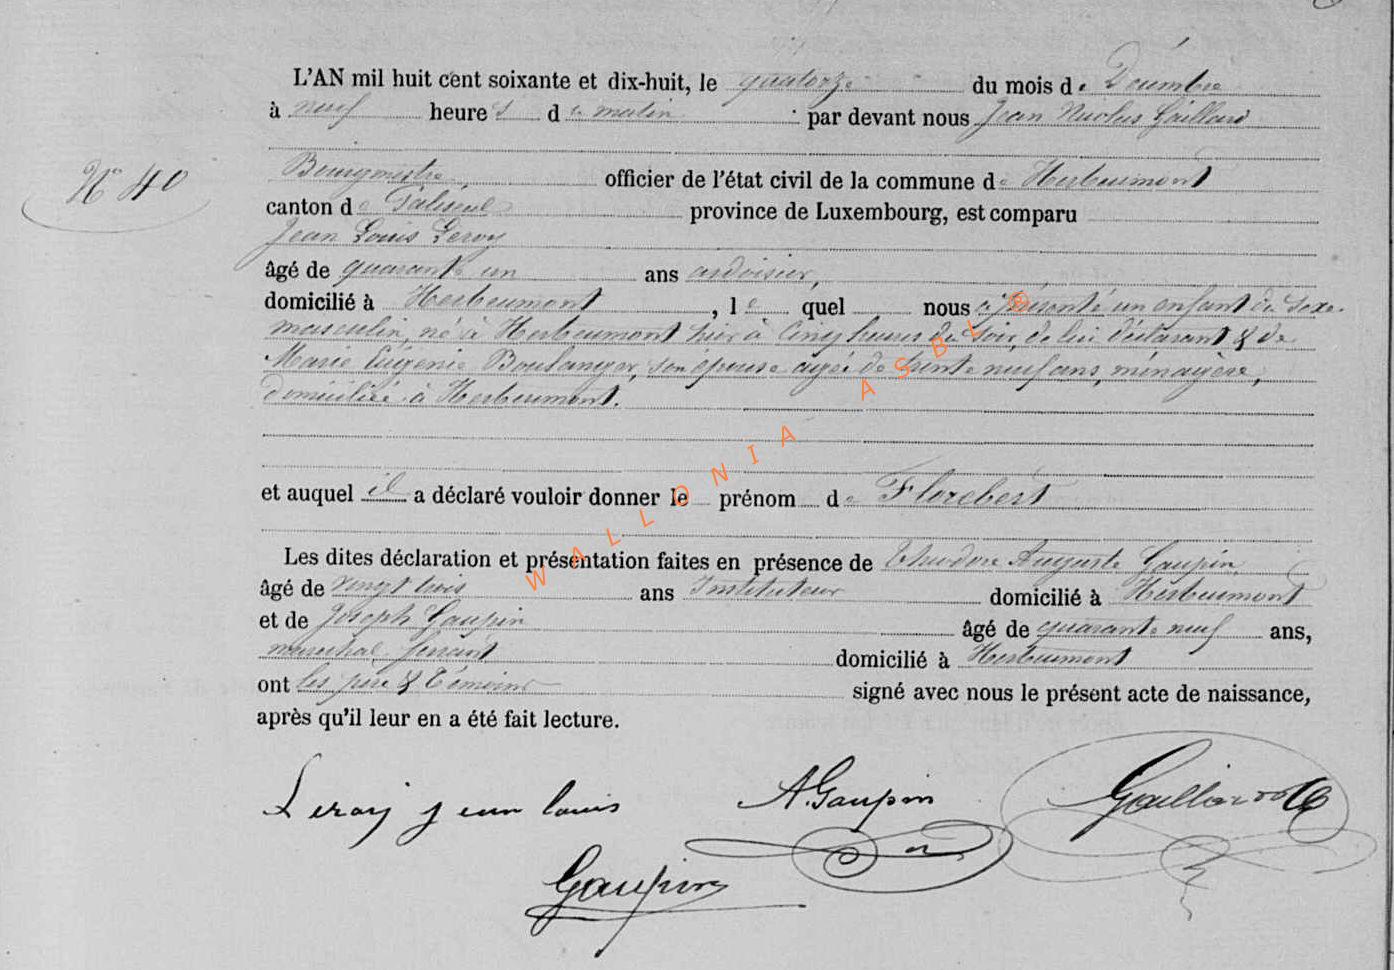 L'AN mil huit cent soixante et dix-huit, le quatorze du mois de Décembre
à neuf heures de matin par devant nous Jean Nicolas Gaillard
Bourgmestre, officier de l'état civil de la commune de Herbeumont
N° 40
canton de Paliseul province de Luxembourg, est comparu
Jean Louis Leroy
âgé de quarante un ans ardoisier,
domicilié à Herbeumont, lequel nous a présenté un enfant du sexe
masculin, né à Herbeumont hier à cinq heures du soir, de lui déclarant & de
Marie Eugénie Boulanger, son épouse agée de trente neuf ans, ménagère,
domiciliée à Herbeumont.
et auquel il a déclaré vouloir donner le prénom de Florebert
Les dites déclaration et présentation faites en présence de Théodore Auguste Gaupin
âgé de vingt trois ans Instituteur domicilié à Herbeumont
et de Joseph Gaupin âgé de quarante neuf ans,
maréchal ferrant domicilié à Herbeumont
ont les père & témoins signé avec nous le présent acte de naissance,
après qu'il leur en a été fait lecture.
Leroy jean louis A. Gaupin Gaillard
Gaupin
WALLONIA ASBL ®